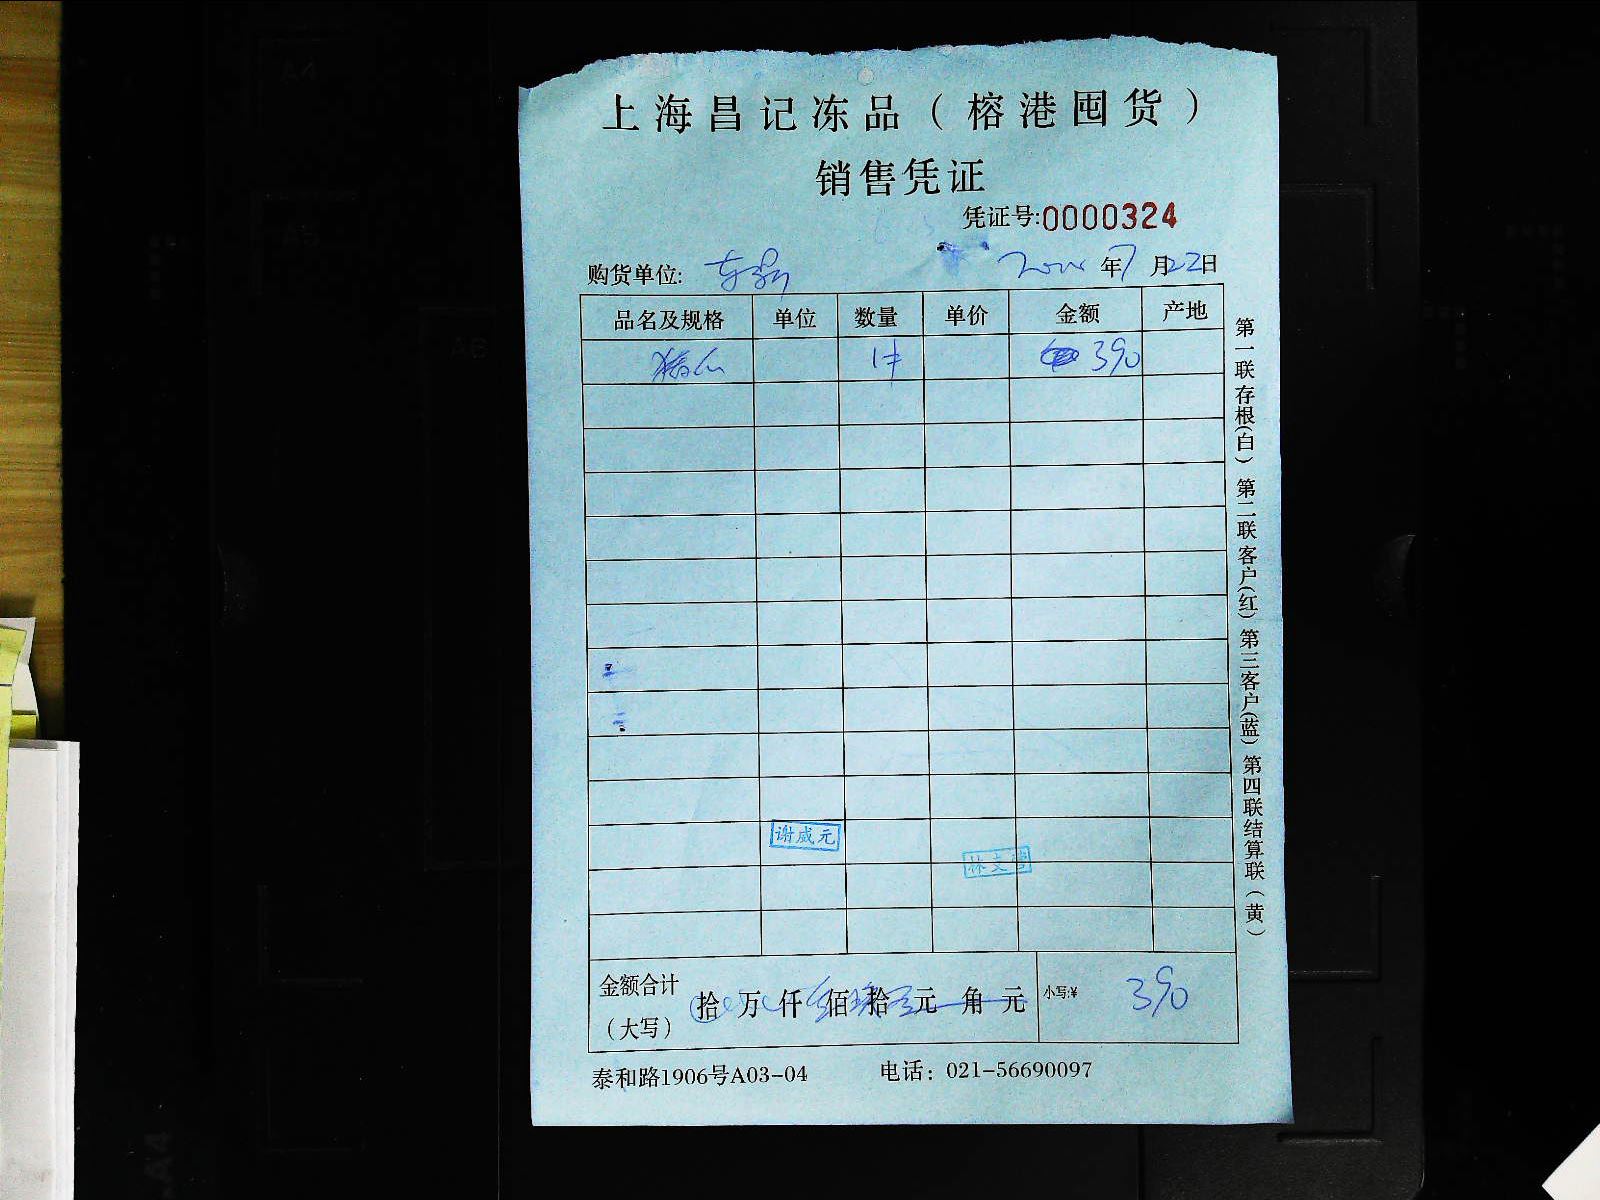 上海昌记冻品（榕港囤货）
销售凭证
凭证号:0000324
购货单位: 年7月22日
品名及规格 单位 数量 单价 金额 产地
1件 390
谢威元
林文
金额合计（大写） 拾 万 仟 佰 拾 元 角 元 小写:¥ 390
泰和路1906号A03-04 电话：021-56690097
第一联存根(白) 第二联客户(红) 第三客户(蓝) 第四联结算联（黄）
A4
A5
A6
A4